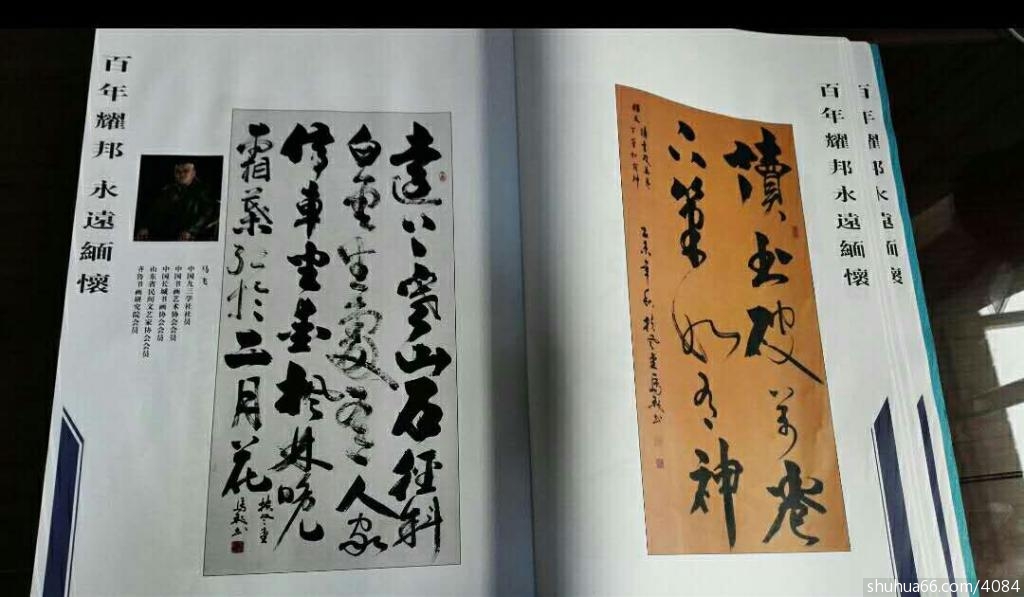 百年耀邦 永遠緬懷
马飞
中国九三学社社员
中国书画艺术协会会员
中国长城书画协会会员
山东省民间文艺家协会会员
齐鲁书画研究院会员
遠上寒山石徑斜
白雲生處有人家
停車坐愛楓林晚
霜葉紅於二月花
讀书破萬卷
下筆如有神
乙未年秋
百年耀邦永遠緬懷
百年耀邦永遠緬懷
shuhua66.com/4084